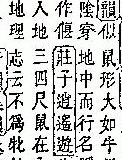 似鼠形大如
陰穿地中而行名
作偃莊子逍遙遊
人地三四尺鼠在
地理志云不爲牝